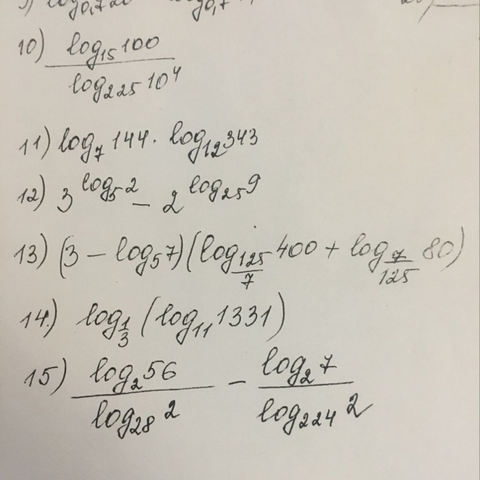 10) log₁₅100 / log₂₂₅10⁴
11) log₇144 · log₁₂343
12) 3^(log₅2) − 2^(log₂₅9)
13) (3 − log₅7)(log_(125/7) 400 + log_(7/125) 80)
14) log_(1/3) (log₁₁1331)
15) log₂56 / log₂₈2 − log₂7 / log₂₂₄2